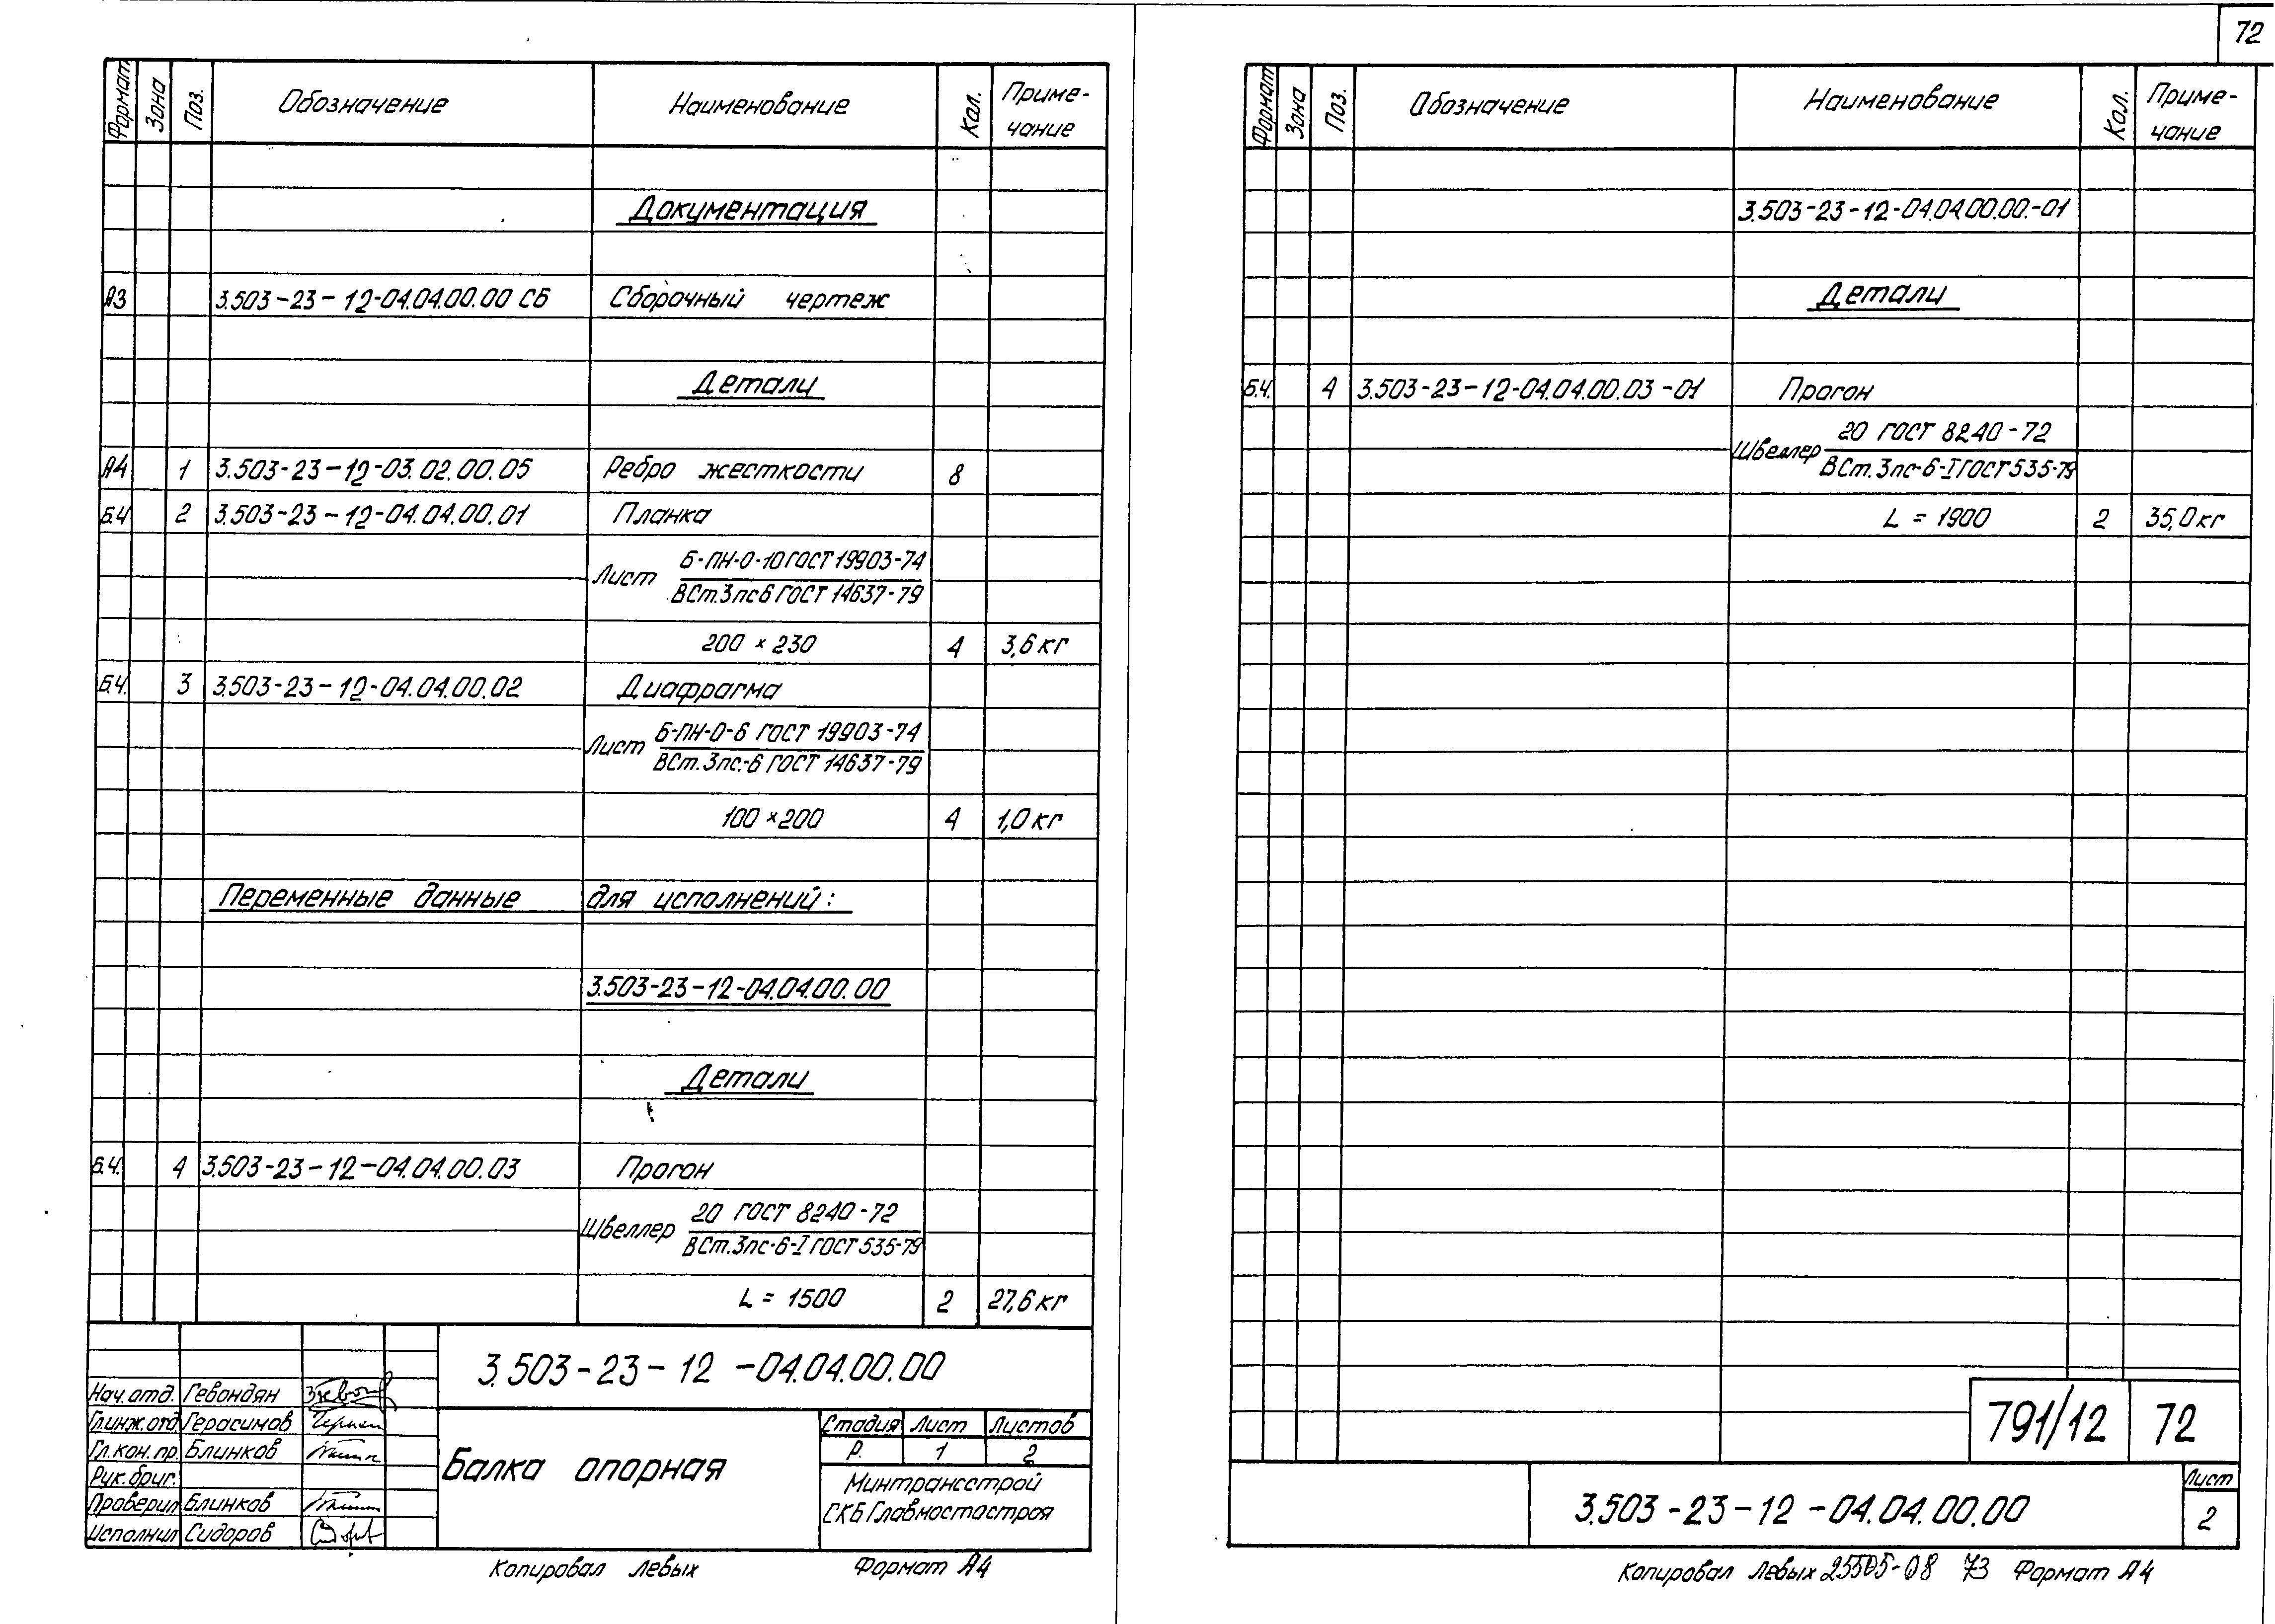 72
Формат Зона Поз. Обозначение Наименование Кол. Приме-
чание
Документация
А3 3.503-23-12-04.04.00.00 СБ Сборочный чертеж
Детали
А4 1 3.503-23-12-03.02.00.05 Ребро жесткости 8
Б.Ч 2 3.503-23-12-04.04.00.01 Планка
Б-ПН-0-10 ГОСТ 19903-74
Лист
ВСт.3пс6 ГОСТ 14637-79
200 × 230 4 3,6 кг
Б.Ч. 3 3.503-23-12-04.04.00.02 Диафрагма
Б-ПН-0-6 ГОСТ 19903-74
Лист
ВСт.3пс-6 ГОСТ 14637-79
100 × 200 4 1,0 кг
Переменные данные для исполнений:
3.503-23-12-04.04.00.00
Детали
Б.Ч. 4 3.503-23-12-04.04.00.03 Прогон
20 ГОСТ 8240-72
Швеллер
ВСт.3пс-6-I ГОСТ 535-79
L = 1500 2 27,6 кг
3.503-23-12-04.04.00.00
Нач.отд. Гевондян
Гл.инж.отд Герасимов
Гл.кон.пр. Блинков
Рук.бриг.
Проверил Блинков
Исполнил Сидоров
Балка опорная
Стадия Лист Листов
Р. 1 2
Минтрансстрой
СКБ Главмостостроя
Копировал Левых Формат А4
Формат Зона Поз. Обозначение Наименование Кол. Приме-
чание
3.503-23-12-04.04.00.00.-01
Детали
Б.Ч. 4 3.503-23-12-04.04.00.03-01 Прогон
20 ГОСТ 8240-72
Швеллер
ВСт.3пс-6-I ГОСТ 535-79
L = 1900 2 35,0 кг
791/12 72
3.503-23-12-04.04.00.00
Лист
2
Копировал Левых 25505-08 73 Формат А4